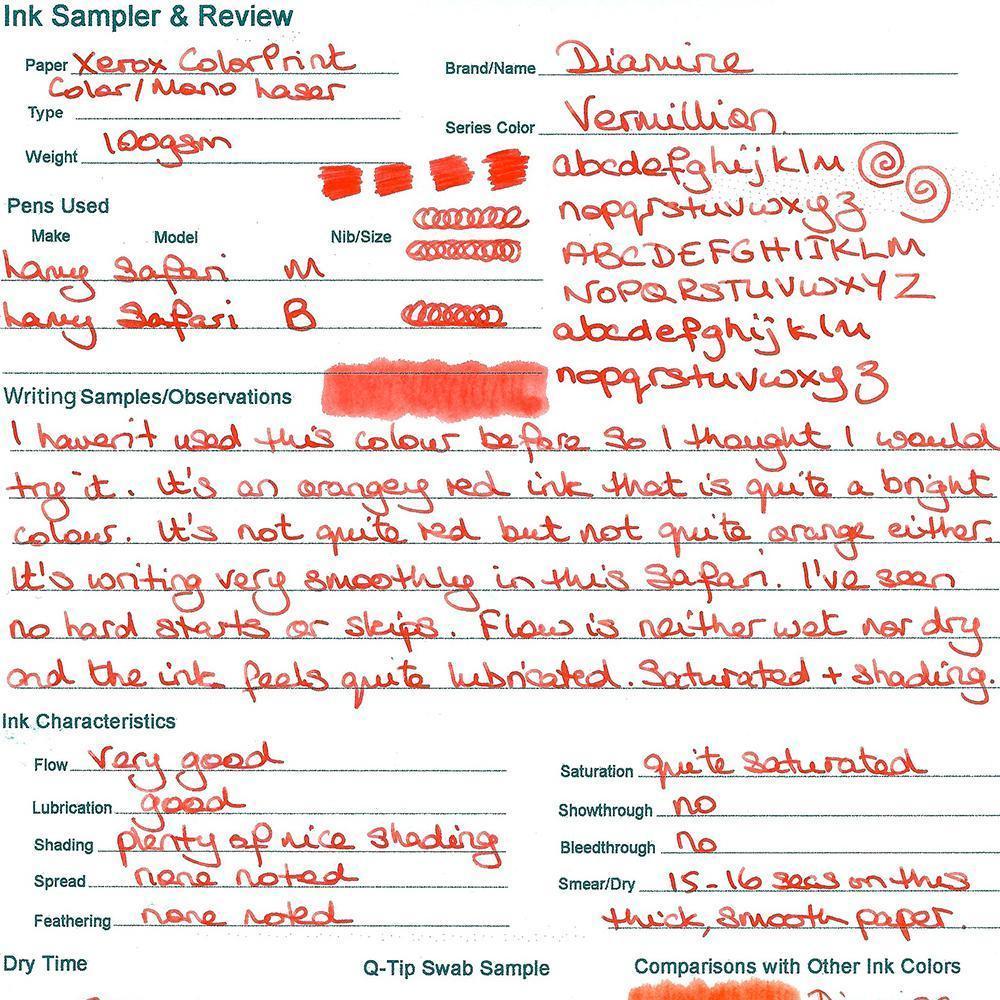 Ink Sampler & Review
Paper Xerox ColorPrint
Color/Mono Laser
Type
Weight 100gsm
Brand/Name Diamine
Series Color Vermillion
abcdefghijklm
nopqrstuvwxyz
ABCDEFGHIJKLM
NOPQRSTUVWXYZ
abcdefghijklm
nopqrstuvwxyz
Pens Used
Make Model Nib/Size
Lamy Safari M
Lamy Safari B
Writing Samples/Observations
I haven't used this colour before so I thought I would
try it. It's an orangey red ink that is quite a bright
colour. It's not quite red but not quite orange either.
It's writing very smoothly in this Safari. I've seen
no hard starts or skips. Flow is neither wet nor dry
and the ink feels quite lubricated. Saturated + shading.
Ink Characteristics
Flow very good
Lubrication good
Shading plenty of nice shading
Spread none noted
Feathering none noted
Saturation quite saturated
Showthrough no
Bleedthrough no
Smear/Dry 15-16 secs on this
thick, smooth paper.
Dry Time
Q-Tip Swab Sample
Comparisons with Other Ink Colors